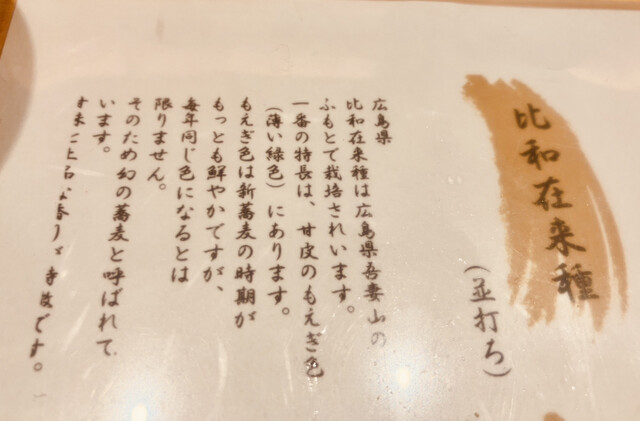 比和在来種
(並打ち)
広島県
比和在来種は広島県吾妻山の
ふもとで栽培されいます。
一番の特長は、甘皮のもえぎ色
(薄い緑色)にあります。
もえぎ色は新蕎麦の時期が
もっとも鮮やかですが、
毎年同じ色になるとは
限りません。
そのため幻の蕎麦と呼ばれて
います。
また上品な香りが特長です。